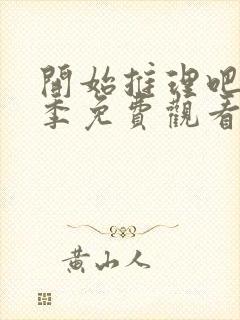 開始推理吧
季免費觀看
黃山人